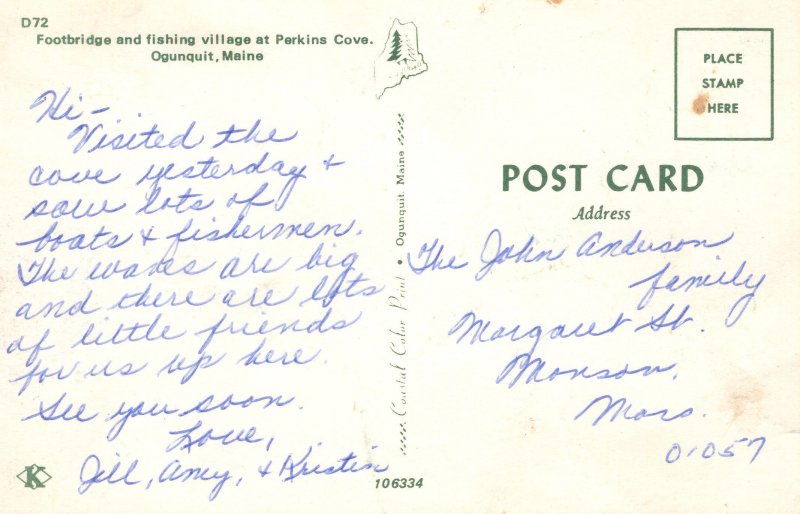 D72
Footbridge and fishing village at Perkins Cove.
Ogunquit, Maine
Hi-
Visited the
cove yesterday &
saw lots of
boats & fishermen.
The waves are big
and there are lots
of little friends
for us up here.
See you soon.
Love,
Jill, Amy, & Kristin
K
Coastal Color Print • Ogunquit, Maine
106334
PLACE
STAMP
HERE
POST CARD
Address
The John Anderson
family
Margaret St.
Monson,
Mass.
01057